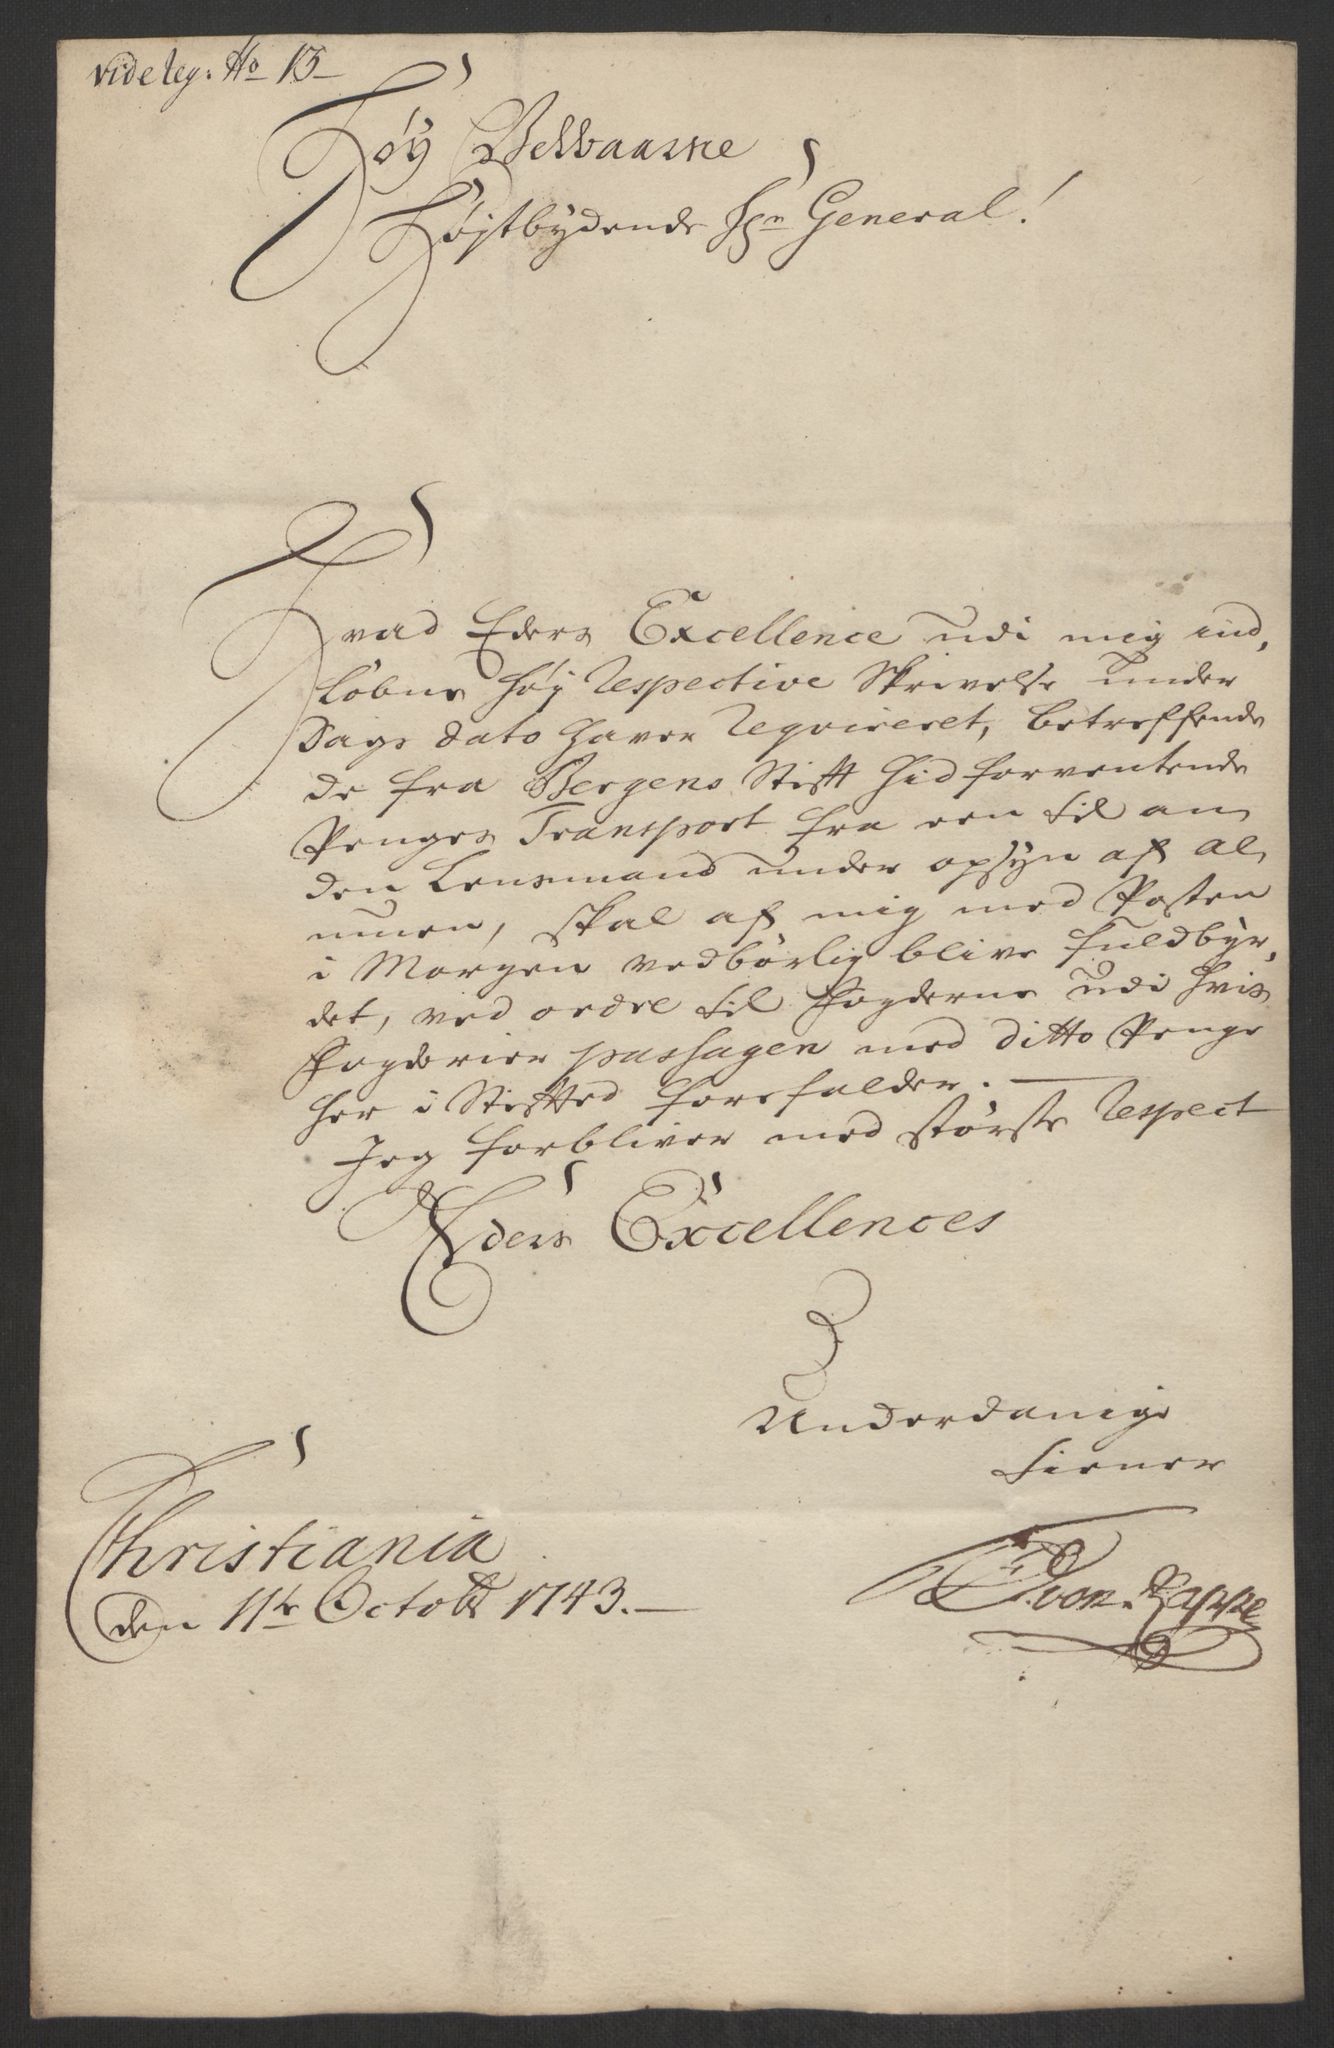 vide leg: No 13
Høy Velbaarne
Høystbydende Hrn General!
Hvad Eders Excellence udi mig ind,
løbne høy respective Skrivelse under
Dags dato haver reqvireret, betreffende
de fra Bergens Stift hid forventende
Penges Transport fra een til an
den Lensmand under opsyn af Al,
muen, skal af mig med Posten
i Morgen vedbørlig blive fuldbyr,
det, ved ordre til Fogderne udi hvis
Fogderier passagen med ditto Penge
her i Stiftet forefalder.
Jeg forbliver med største respect
Eders Excellences
Underdanige
tiener
Christiania
den 11te Octobr 1743.
von Rappe